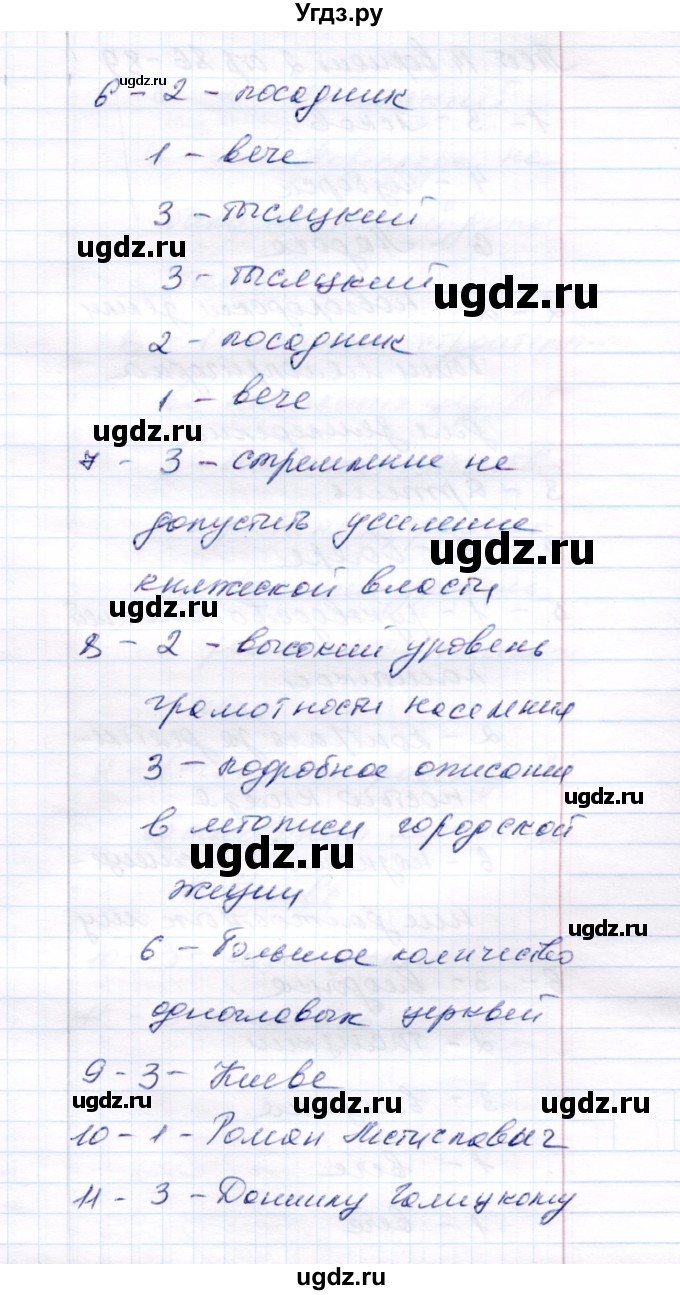 Угдз.ру
ugdz.ru
6 - 2 - посадник
1 - вече
3 - тысяцкий
ugdz.ru
3 - тысяцкий
ugdz.ru
2 - посадник
1 - вече
ugdz.ru
7 - 3 - стремление не
допустить усиление
ugdz.ru
княжеской власти
ugdz.ru
8 - 2 - высокий уровень
грамотности населения
3 - подробное описание
ugdz.ru
в летописи городской
ugdz.ru
жизни
ugdz.ru
6 - большое количество
одноглавых церквей
9 - 3 - Киеве
ugdz.ru
ugdz.ru
10 - 1 - Роман Мстиславович
ugdz.ru
11 - 3 - Даниилу Галицкому
ugdz.ru
ugdz.ru